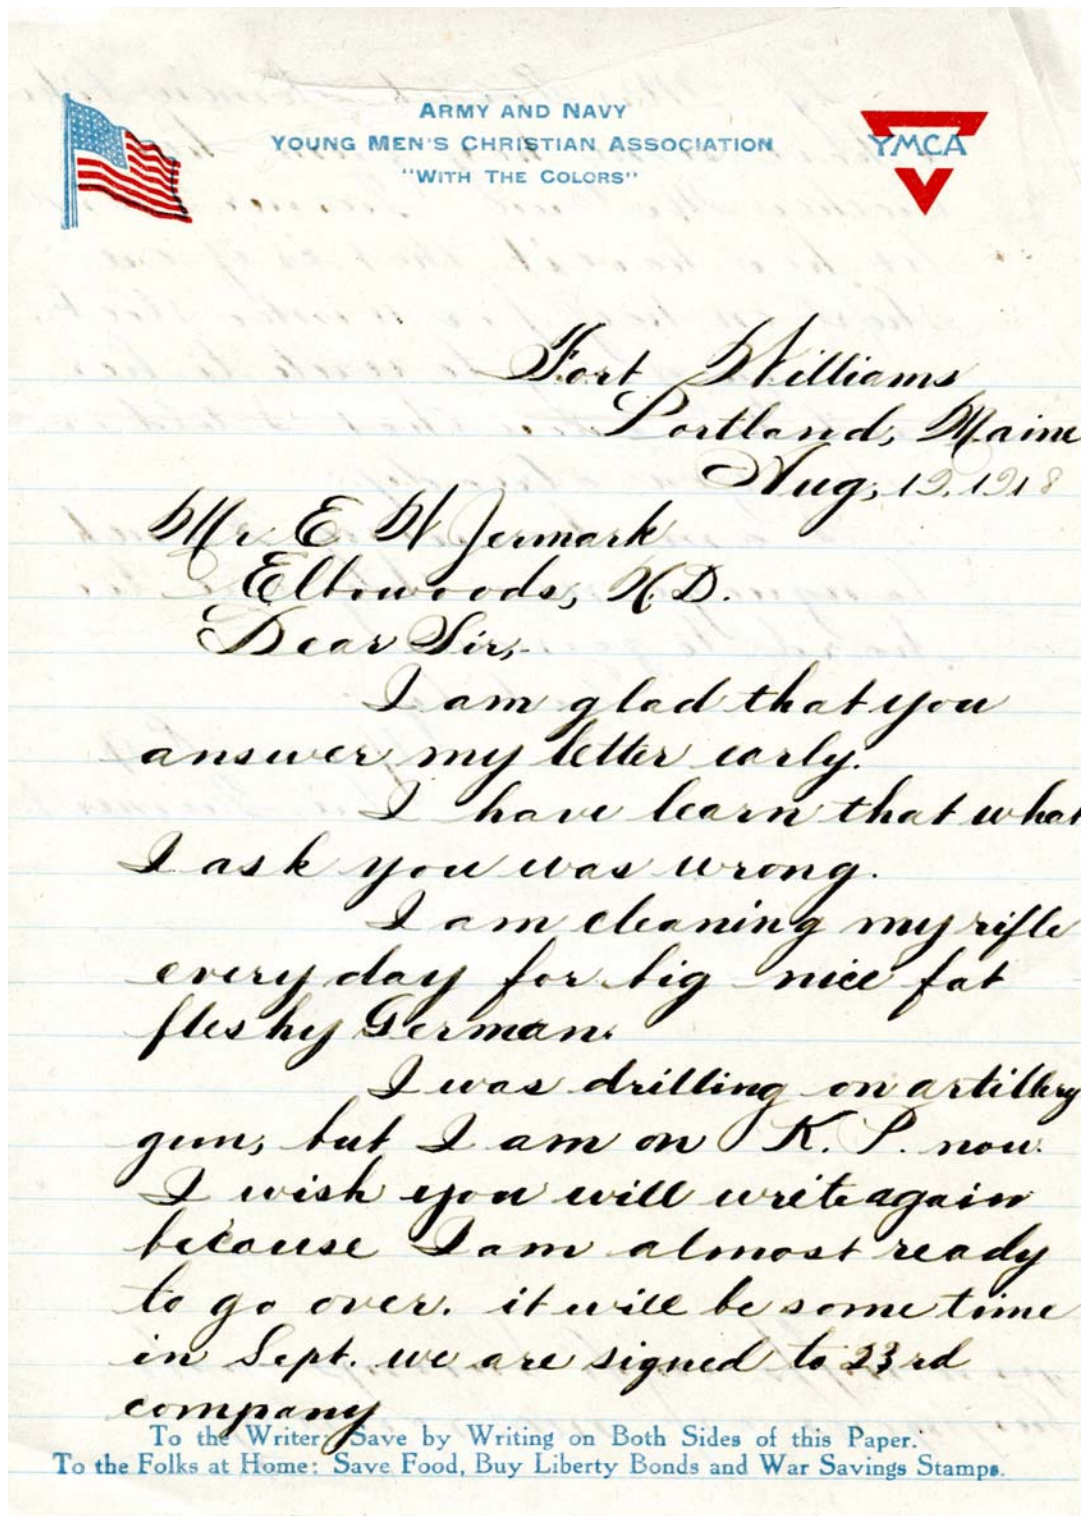 ARMY AND NAVY
YOUNG MEN'S CHRISTIAN ASSOCIATION
"WITH THE COLORS"
YMCA
Fort Williams
Portland, Maine
Aug, 19, 1918
Mr E W Jermark
Elbowoods, N.D.
Dear Sir,-
I am glad that you
answer my letter early.
I have learn that what
I ask you was wrong.
I am cleaning my rifle
every day for big nice fat
fleshy German.
I was drilling on artillery
gun, but I am on K. P. now.
I wish you will write again
because I am almost ready
to go over. it will be some time
in Sept. we are signed to 23rd
company
To the Writer: Save by Writing on Both Sides of this Paper.
To the Folks at Home: Save Food, Buy Liberty Bonds and War Savings Stamps.